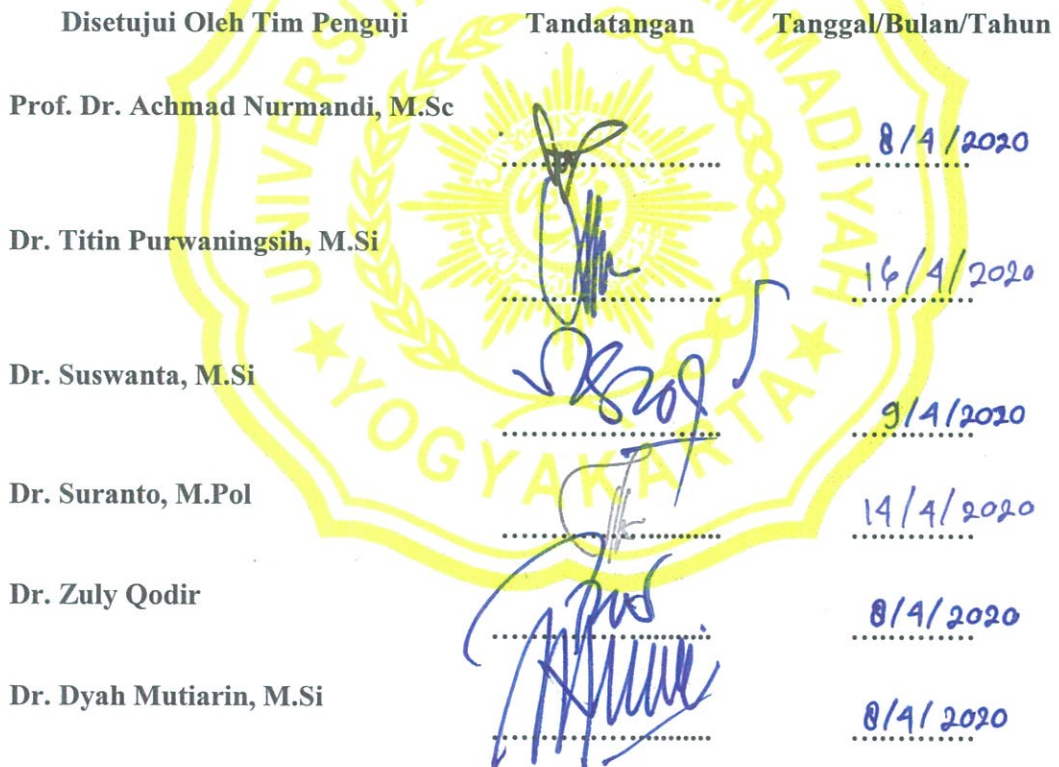 Disetujui Oleh Tim Penguji Tandatangan Tanggal/Bulan/Tahun
Prof. Dr. Achmad Nurmandi, M.Sc 8/4/2020
Dr. Titin Purwaningsih, M.Si 16/4/2020
Dr. Suswanta, M.Si 9/4/2020
Dr. Suranto, M.Pol 14/4/2020
Dr. Zuly Qodir 8/4/2020
Dr. Dyah Mutiarin, M.Si 8/4/2020
YOGYAKARTA